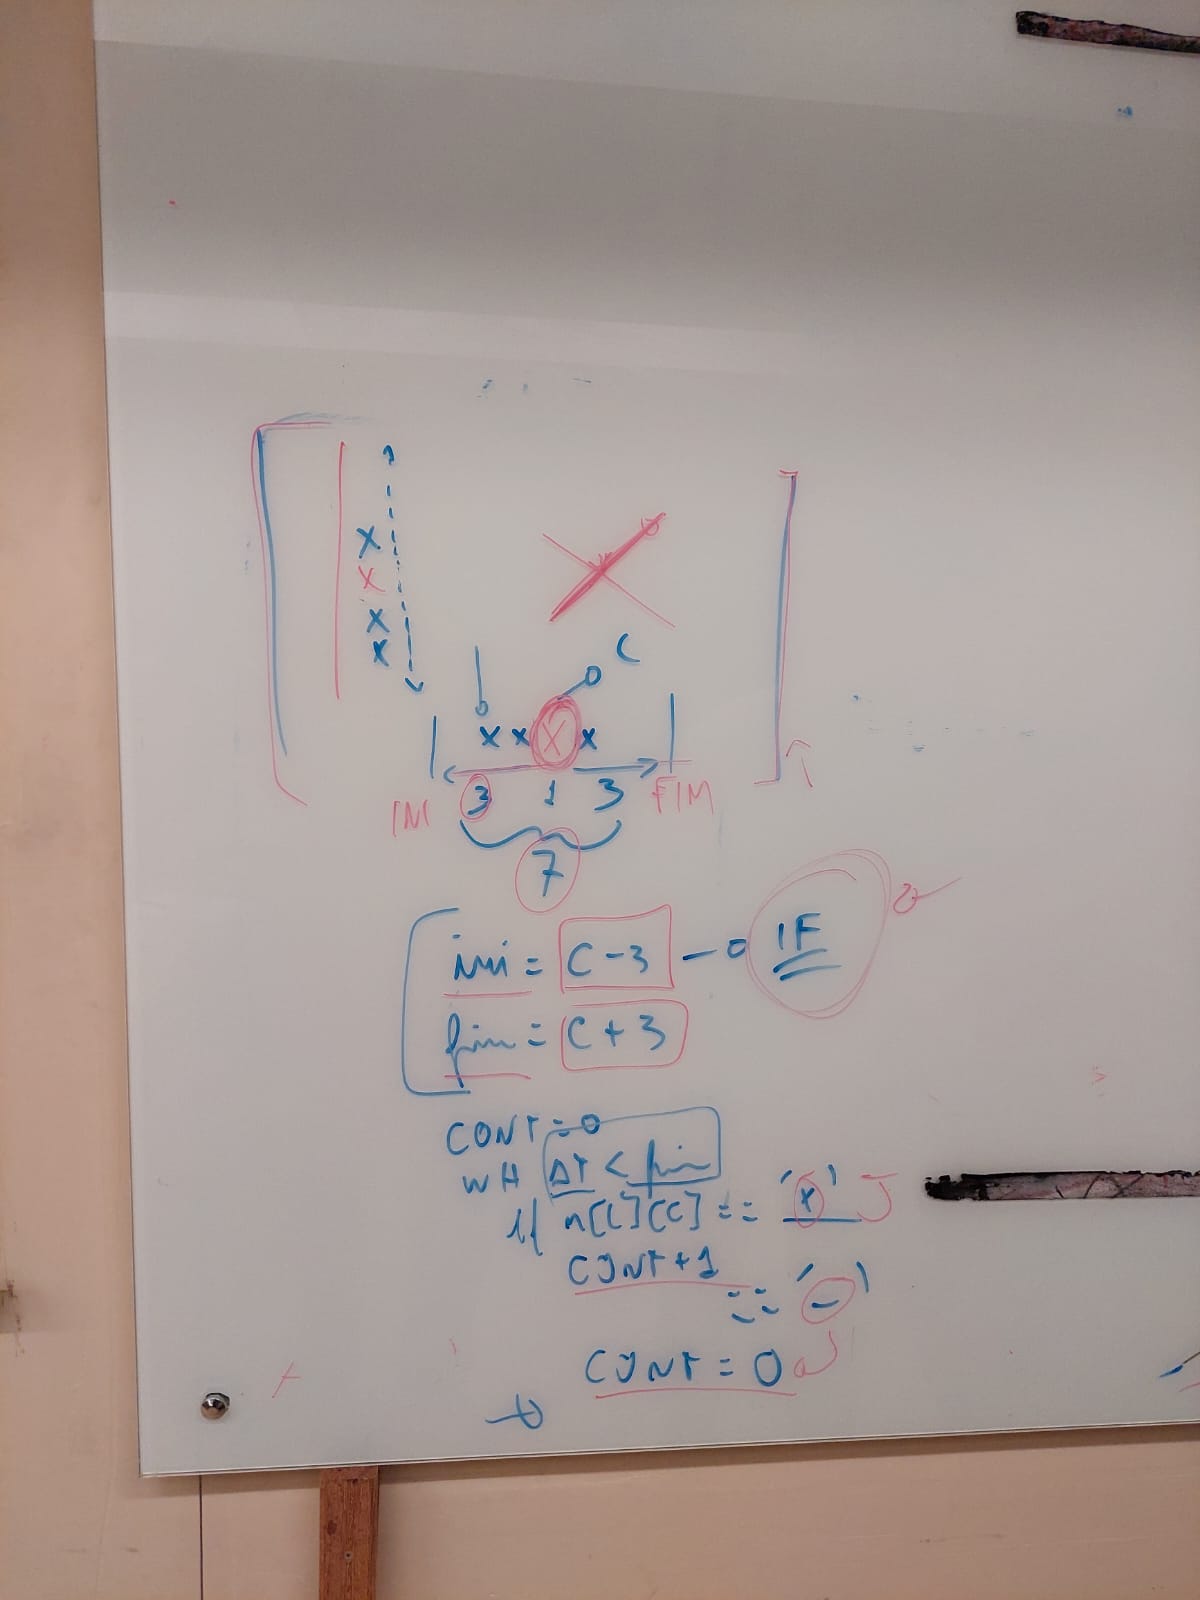 X
X
X
X
C
X X X X
INI 3 1 3 FIM
7
ini = C-3 IF
fim = C+3
CONT=0
WH AT < fim
if n[L][C] == 'X'
CONT+1
== '-'
CONT = 0